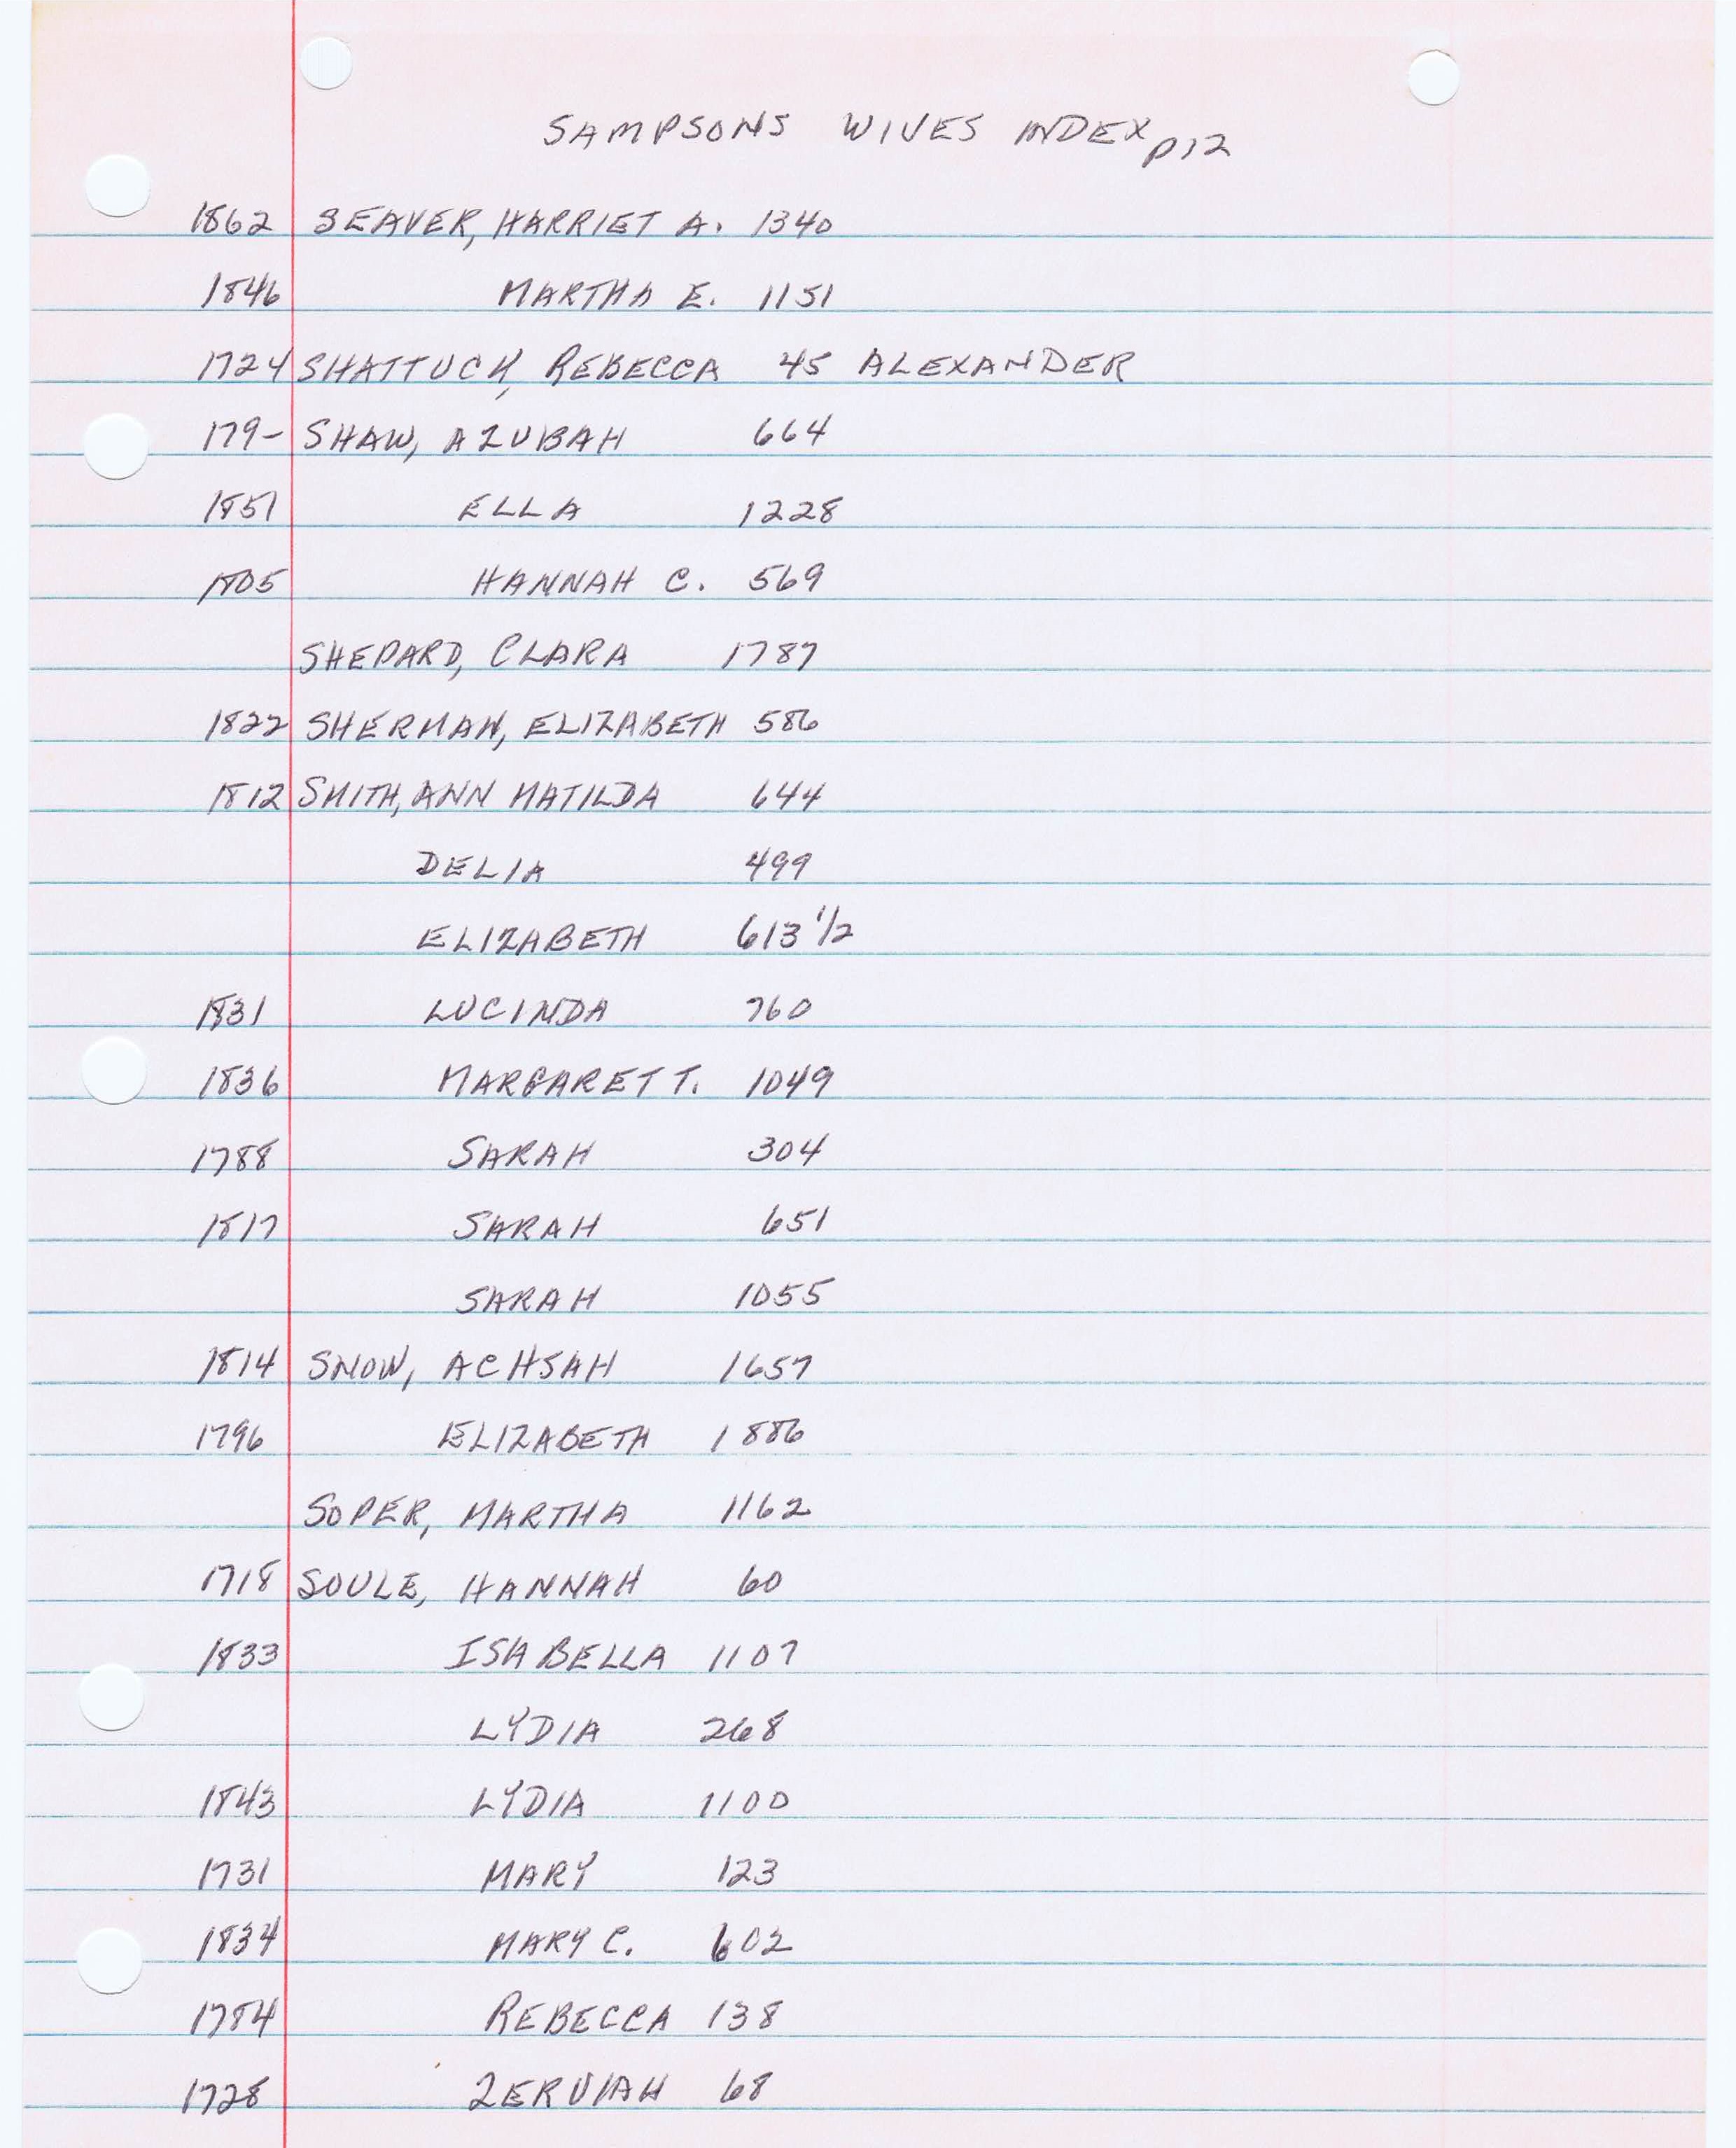 SAMPSONS WIVES INDEX p12
1862 SEAVER, HARRIET A. 1340
1846 MARTHA E. 1151
1724 SHATTUCK, REBECCA 45 ALEXANDER
179- SHAW, AZUBAH 664
1851 ELLA 1228
1805 HANNAH C. 569
SHEPARD, CLARA 1787
1822 SHERMAN, ELIZABETH 586
1812 SMITH, ANN MATILDA 644
DELIA 499
ELIZABETH 613 1/2
1831 LUCINDA 760
1836 MARGARET T. 1049
1788 SARAH 304
1817 SARAH 651
SARAH 1055
1814 SNOW, ACHSAH 1657
1796 ELIZABETH 1886
SOPER, MARTHA 1162
1718 SOULE, HANNAH 60
1833 ISABELLA 1107
LYDIA 268
1843 LYDIA 1100
1731 MARY 123
1834 MARY C. 602
1784 REBECCA 138
1728 ZERUIAH 68